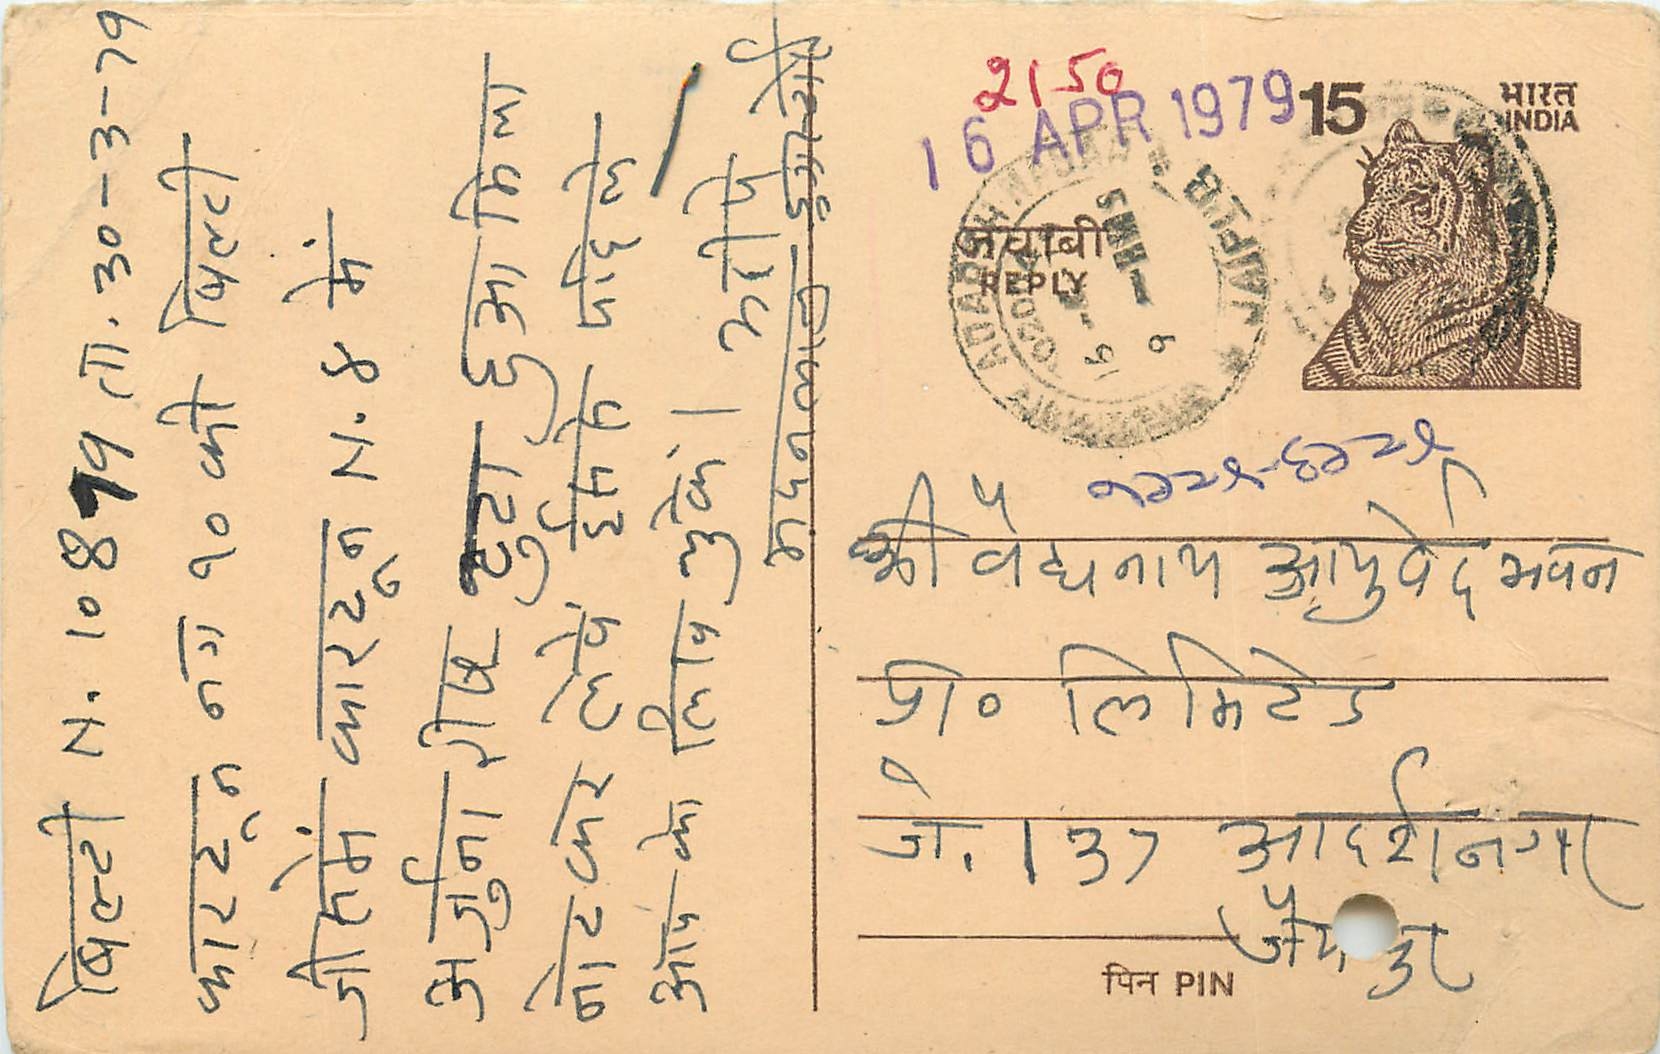 बिल्टी N. 10899 ता. 30-3-79
कारटून नग १० की बिल्टी
जीसमें कारटून N. 8 में
अर्जुना रीष्ट टुटा हुआ मिला
नोट कर लेवे इसके पहिले
आप को लिख चुके।
मदनलाल
2150
16 APR 1979
15
भारत
INDIA
जवाबी
REPLY
ADARSH NAGAR
JAIPUR
श्री वैद्यनाथ आयुर्वेद भवन
प्रा० लिमिटेड
जे. 137 आदर्शनगर
जैपुर
पिन PIN